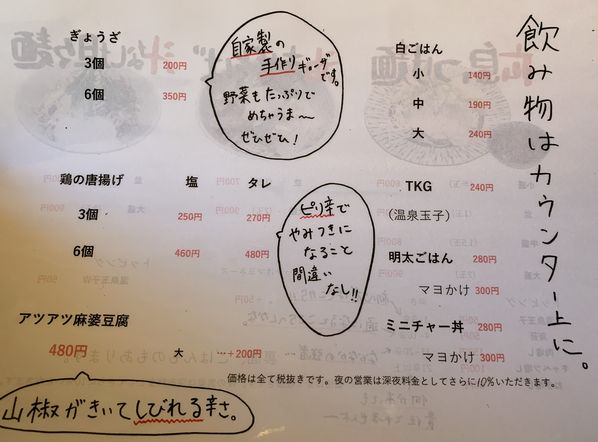 ぎょうざ
3個 200円
6個 350円
自家製の
手作りギョーザです。
野菜もたっぷりで
めちゃうま〜
ぜひぜひ!
白ごはん
小 140円
中 190円
大 240円
飲み物はカウンター上に。
鶏の唐揚げ 塩 タレ
3個 250円 270円
6個 460円 480円
ピリ辛で
やみつきに
なること
間違い
なし!!
TKG 240円
(温泉玉子)
明太ごはん 280円
マヨかけ 300円
ミニチャー丼 280円
マヨかけ 300円
アツアツ麻婆豆腐
480円 大 …+200円
山椒がきいてしびれる辛さ。
価格は全て税抜きです。夜の営業は深夜料金としてさらに10%いただきます。